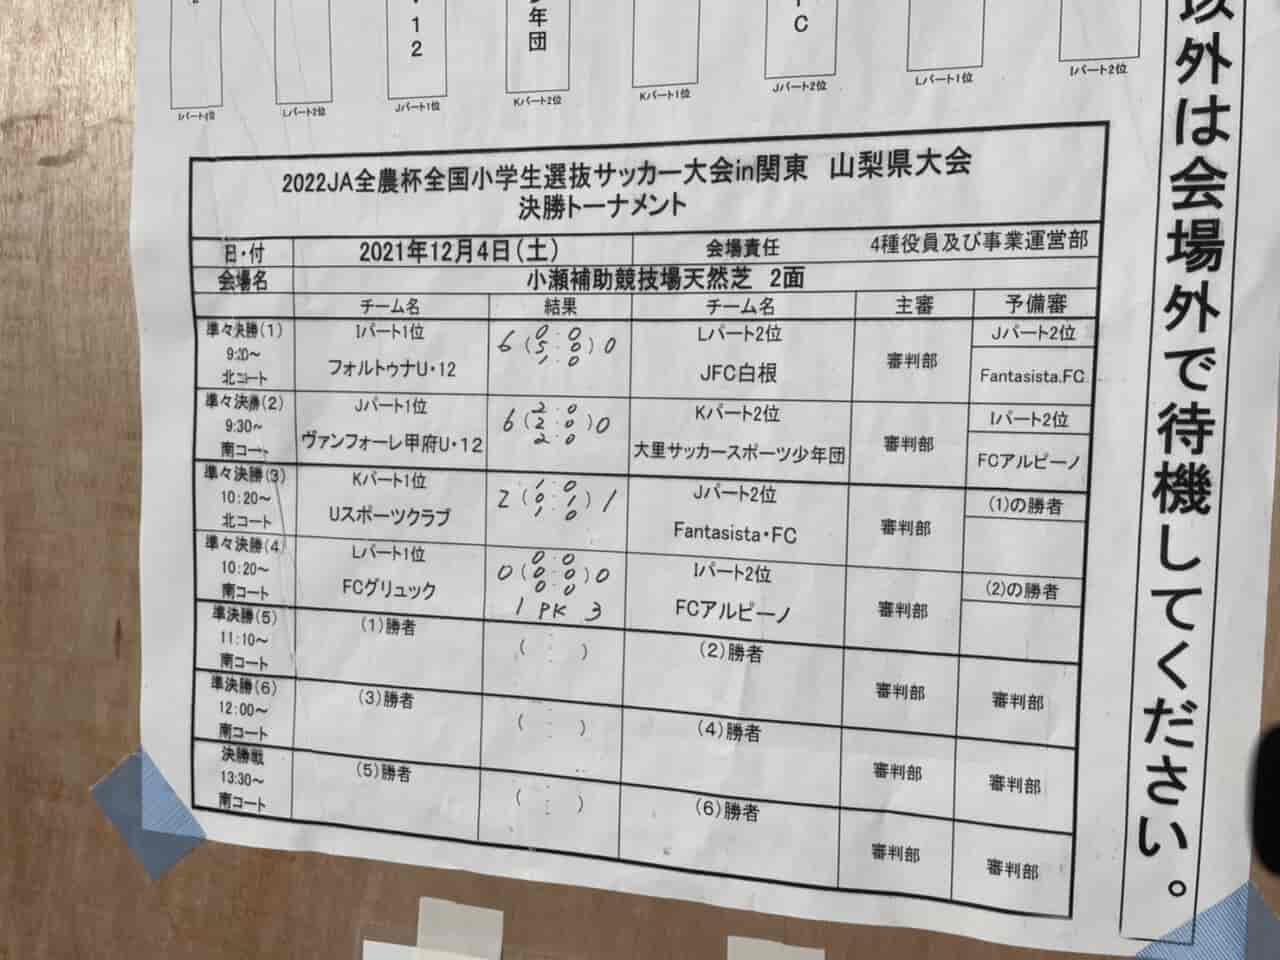 ・12
年団
C
Iパート1位
Lパート2位
Jパート1位
Kパート2位
Kパート1位
Jパート2位
Lパート1位
Iパート2位
以外は会場外で待機してください。
2022JA全農杯全国小学生選抜サッカー大会in関東 山梨県大会
決勝トーナメント
日・付 2021年12月4日(土) 会場責任 4種役員及び事業運営部
会場名 小瀬補助競技場天然芝 2面
チーム名 結果 チーム名 主審 予備審
準々決勝(1)
9:20~
北コート
Iパート1位
フォルトゥナU・12
0:0
6(5:0)0
1:0
Lパート2位
JFC白根
審判部
Jパート2位
Fantasista.FC
準々決勝(2)
9:30~
南コート
Jパート1位
ヴァンフォーレ甲府U・12
2:0
6(2:0)0
2:0
Kパート2位
大里サッカースポーツ少年団
審判部
Iパート2位
FCアルピーノ
準々決勝(3)
10:20~
北コート
Kパート1位
Uスポーツクラブ
1:0
2(0:1)1
1:0
Jパート2位
Fantasista・FC
審判部
(1)の勝者
準々決勝(4)
10:20~
南コート
Lパート1位
FCグリュック
0:0
0(0:0)0
0:0
1 PK 3
Iパート2位
FCアルピーノ
審判部
(2)の勝者
準決勝(5)
11:10~
南コート
(1)勝者
( : )
(2)勝者
審判部
審判部
準決勝(6)
12:00~
南コート
(3)勝者
( : )
(4)勝者
審判部
審判部
決勝戦
13:30~
南コート
(5)勝者
( : )
(6)勝者
審判部
審判部